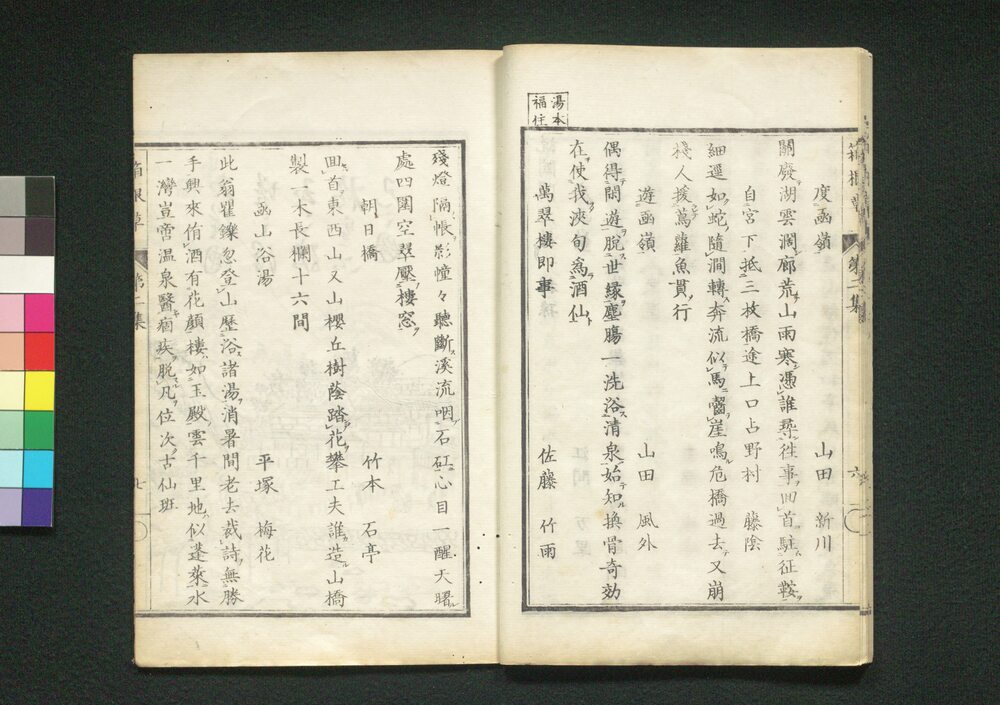 湯本
福住
度函嶺　山田　新川
關廢湖雲濶廊荒山雨寒憑誰尋徃事回首駐征鞍
自宮下抵三枚橋途上口占　野村　藤陰
細逕如蛇隨澗轉奔流似馬齧崖鳴危橋過去又崩
棧人援蔦蘿魚貫行
遊函嶺　山田　風外
偶得閒遊脫世縁塵膓一洗浴清泉始知換骨奇効
在使我浹旬爲酒仙
萬翠樓即事　佐藤　竹雨
殘燈隔帳影幢々聽斷溪流咽石矼心目一醒天曙
處四圍空翠壓樓窓
朝日橋　竹本　石亭
回首東西山又山櫻丘樹蔭踏花攀工夫誰造山橋
製一木長欄十六間
函山浴湯　平塚　梅花
此翁矍鑠忽登山歷浴諸湯消暑間老去裁詩無勝
手興來侑酒有花顔樓如玉殿雲千里地似蓬萊水
一灣豈啻温泉醫痼疾脫凡位次古仙班
箱根草　第二集　六
箱根草　第二集　七